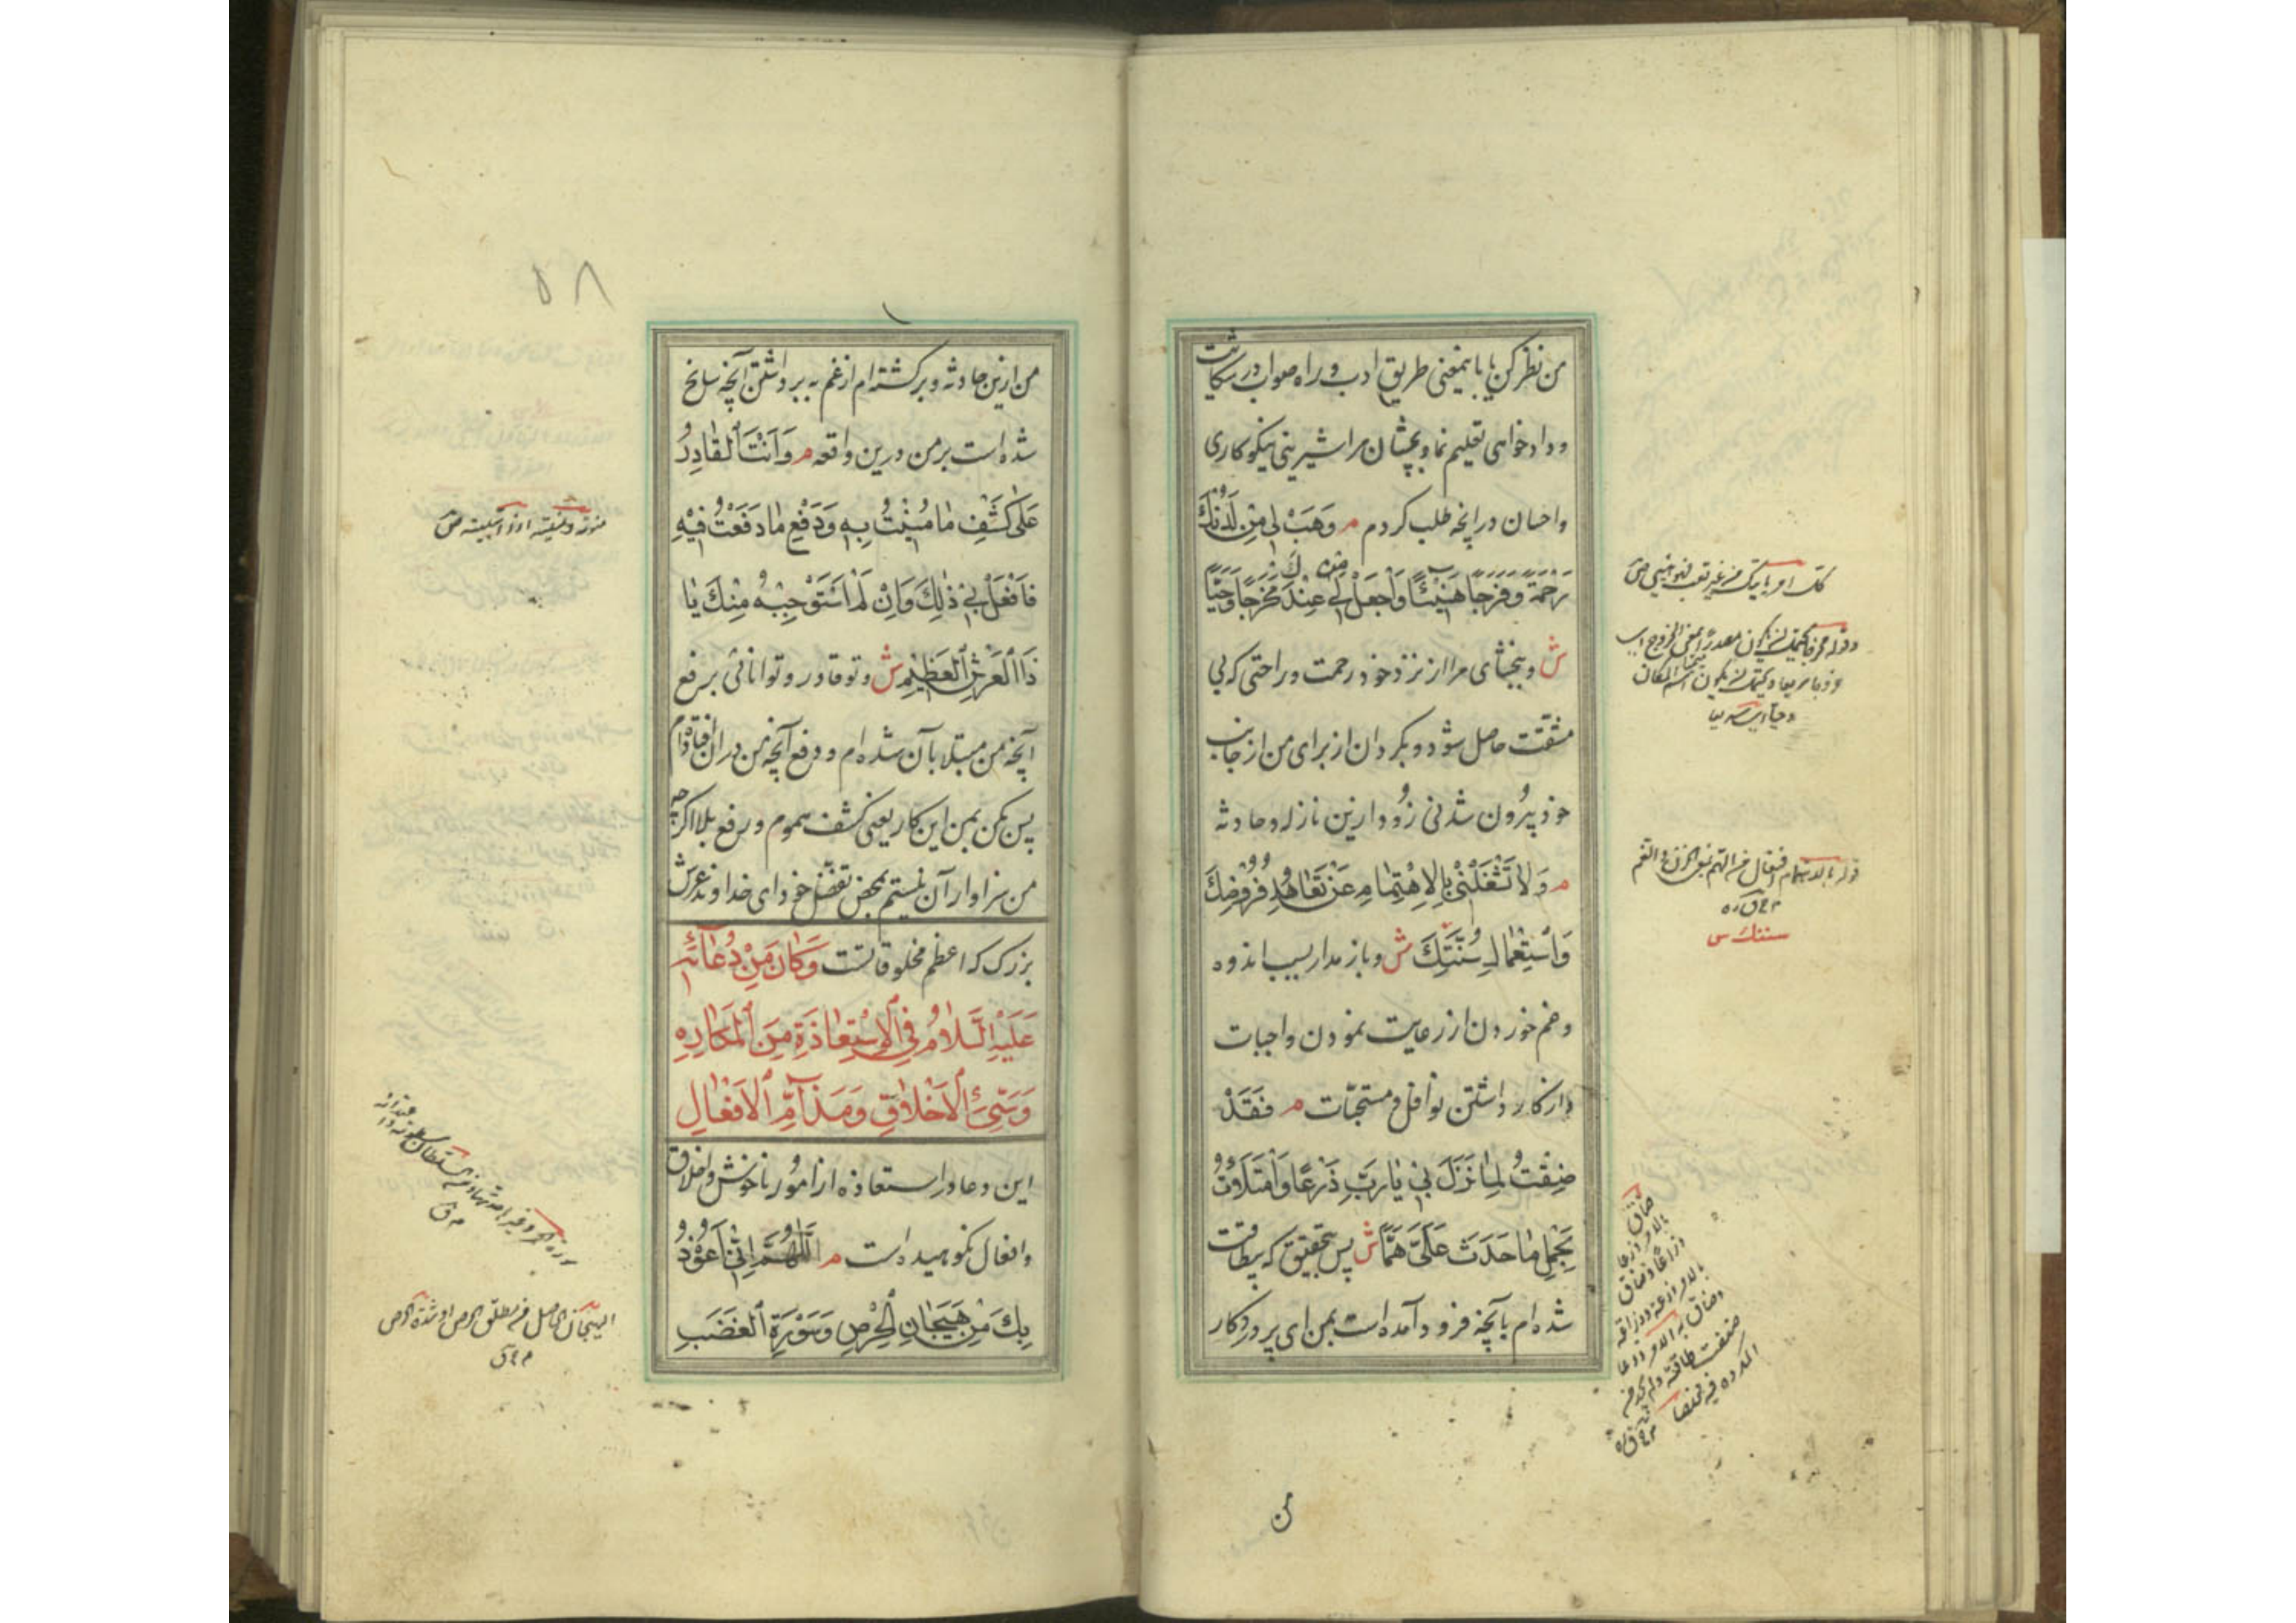 من نظر کن یا باینمعنی طریق ادب و راه صواب در شکایت
و دادخواهی تعلیم نما و بچشان مرا شیرینی نیکوکاری
و احسان در انچه طلب کردم م وَهَبْ لِی مِنْ لَدُنْكَ
رَحْمَةً وَفَرَجًا هَنِیْئًا وَاجْعَلْ لِی مِنْ عِنْدِكَ مَخْرَجًا وَحِیًّا
ش و ببخشای مرا از نزد خود رحمت و راحتی که بی
مشقت حاصل شود و بگردان از برای من از جانب
خود بیرون شدنی زود ازین نازله و حادثه
م وَلَا تَشْغَلْنِیْ بِالْاِهْتِمَامِ عَنْ تَعَاهُدِ فُرُوْضِكَ
وَاسْتِعْمَالِ سُنَّتِكَ ش و باز مدار بسبب اندوه
و غم خوردن از رعایت نمودن واجبات
و از کار داشتن نوافل و مستحبّات م فَقَدْ
ضِقْتُ لِمَا نَزَلَ بِیْ یَا رَبِّ ذَرْعًا وَامْتَلَاْتُ
بِحَمْلِ مَا حَدَثَ عَلَیَّ هَمًّا ش پس بتحقیق که بیطاقت
شده‌ام بآنچه فرود آمده است بمن ای پروردکار
قوله بالاهتمام افتعال من الهم بمعنی الحزن و الغم
سننك س
ضاق
بالامر ذرعا
من
۵۸
من ازین حادثه و برکشته‌ام از غم به برداشتن آنچه سانح
شده است بر من درین واقعه م وَاَنْتَ الْقَادِرُ
عَلٰی كَشْفِ مَا مُنِیْتُ بِهِ وَدَفْعِ مَا دَفَعْتُ فِیْهِ
فَافْعَلْ بِیْ ذٰلِكَ وَاِنْ لَمْ اَسْتَوْجِبْهُ مِنْكَ یَا
ذَا الْعَرْشِ الْعَظِیْمِ ش و تو قادر و توانائی بر رفع
آنچه من مبتلا بآن شده‌ام و دفع آنچه من در ان افتاده‌ام
پس بکن بمن این کار یعنی کشف هموم و رفع بلا اکرچه
من سزاوار آن نیستم بمحض تفضل خود ای خداوند عرش
بزرک که اعظم مخلوقاتست وَكَانَ مِنْ دُعَائِهِ
عَلَیْهِ السَّلَامُ فِی الْاِسْتِعَاذَةِ مِنَ الْمَكَارِهِ
وَسَیِّئِ الْاَخْلَاقِ وَمَذَآمِّ الْاَفْعَالِ
این دعا در استعاذه از امور ناخوش و اخلاق
و افعال نکوهیده است م اَللّٰهُمَّ اِنِّیْ اَعُوْذُ
بِكَ مِنْ هَیَجَانِ الْحِرْصِ وَسَوْرَةِ الْغَضَبِ